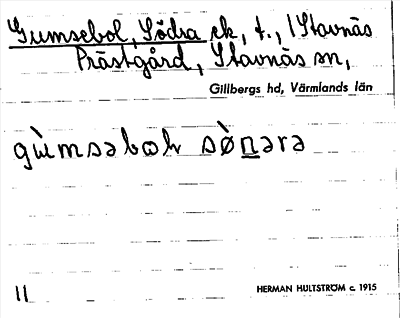 Gumsebol, Södra ek, t., i Stavnäs
Prästgård, Stavnäs sn,
Gillbergs hd, Värmlands län
gù̀msəboḷ sø̀ṉərə
11
HERMAN HULTSTRÖM c. 1915